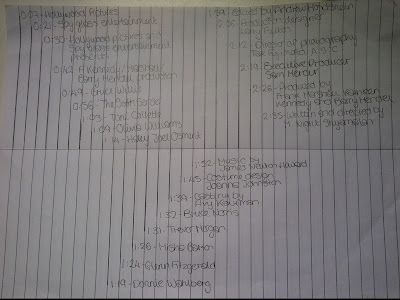 0:07- Hollywood Pictures
0:21- Spy glass entertainment
0:30- Hollywood pictures and
Spy glass entertainment
production
0:42- A Kennedy/Marshall/
Barry Mendel production
0:49- Bruce Willis
0:56- The Sixth Sense
1:03- Toni Collette
1:09- Olivia Williams
1:14- Haley Joel Osment
1:19- Donnie Wahlberg
1:24- Glenn Fitzgerald
1:26- Mischa Barton
1:31- Trevor Morgan
1:32- Bruce Norris
1:39- Casting by
Avy Kaufman
1:45- Costume design
Joanna Johnston
1:52- Music by
James Newton Howard
Edited by Andrew Mondshein
Production designer
Larry Fulton
2:12- Director of photography
Tak Fujimoto
2:19- Executive Producer
Sam Mercer
2:26- Produced by
Frank Marshall, Kathleen
Kennedy and Barry Mendel
2:35- written and directed by
M. Night Shyamalan